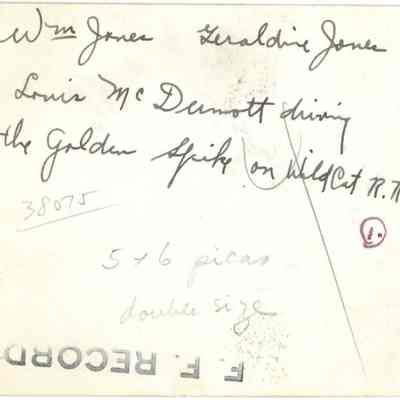 Wm Jones Geraldine Jones
Louis McDermott driving
the Golden Spike on WildCat R.R
38075
1.
5 + 6 picas
double size
F. F. RECORD